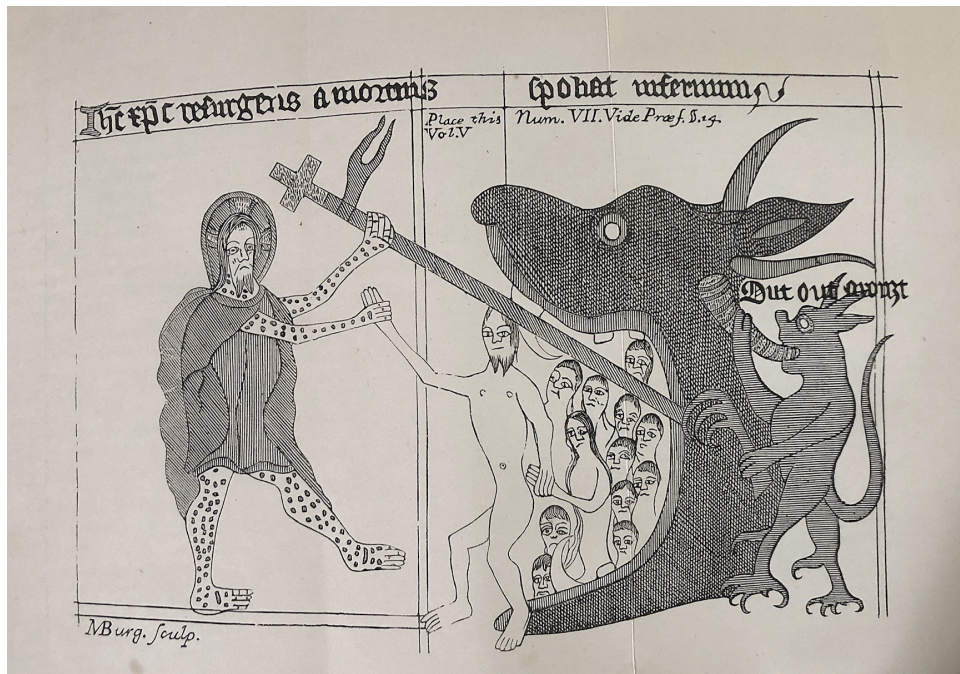 Ih̄c xp̄c resurgens a mortuis spoliat infernum
Place this Num. VII. Vide Præf. §.14.
Vol.V
Out out arongt
MBurg. sculp.